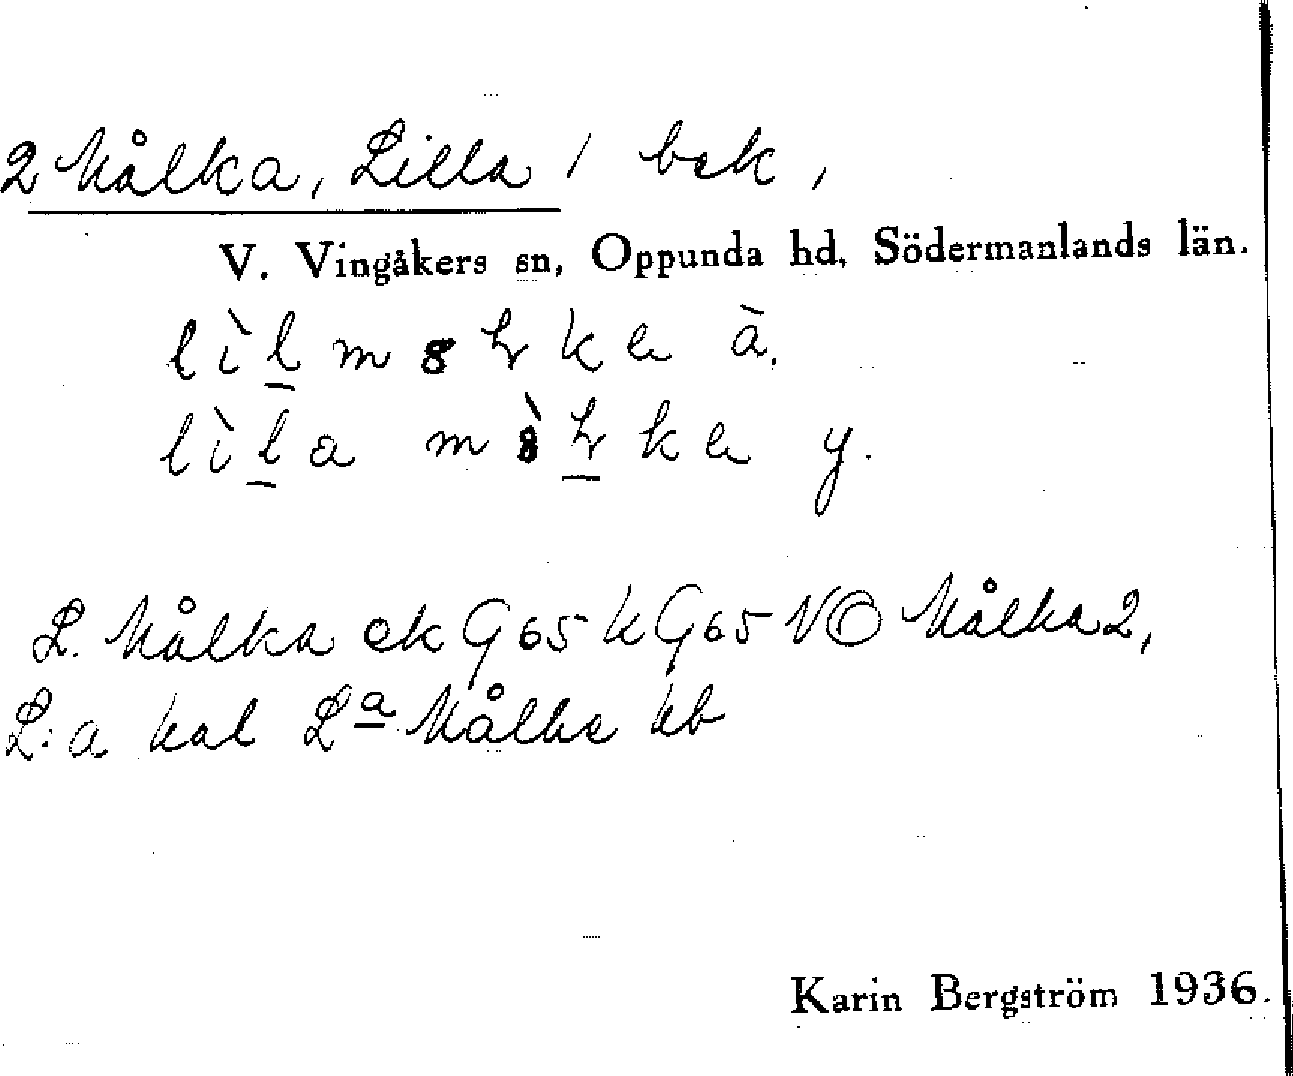 2 Målka, Lilla / bsk,
V. Vingåkers sn, Oppunda hd, Södermanlands län.
lìl m ka ä.
lìla m ka y.
L. Målka ek G65 k G65 NO Målka 2,
L:a kal La Målka kb
Karin Bergström 1936.